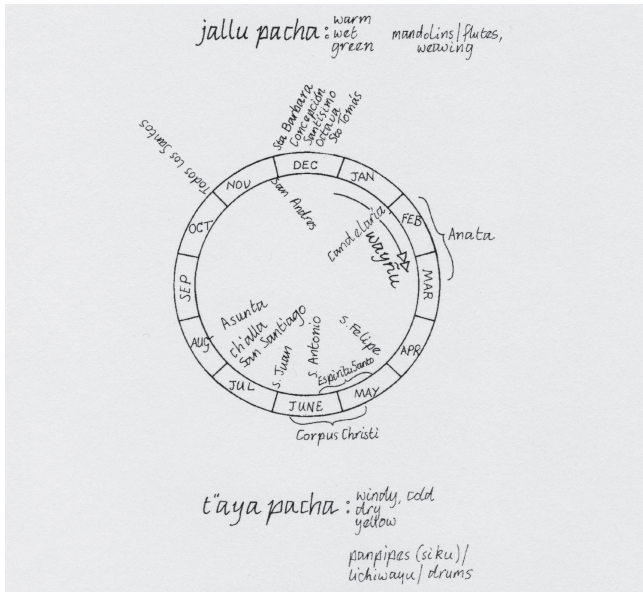 jallu pacha: warm
wet
green
mandolins/flutes,
weaving
Sta Barbara
Concepción
Santísimo
Octava
Sto Tomás
Todos Los Santos
DEC
JAN
FEB
MAR
APR
MAY
JUNE
JUL
AUG
SEP
OCT
NOV
San Andres
Candelaria
wayñu
Anata
Asunta
ch'alla
San Santiago
S. Juan
S. Antonio
S. Felipe
Espiritu Santo
Corpus Christi
t"aya pacha: windy, cold
dry
yellow
panpipes (siku)/
lichiwayu/drums